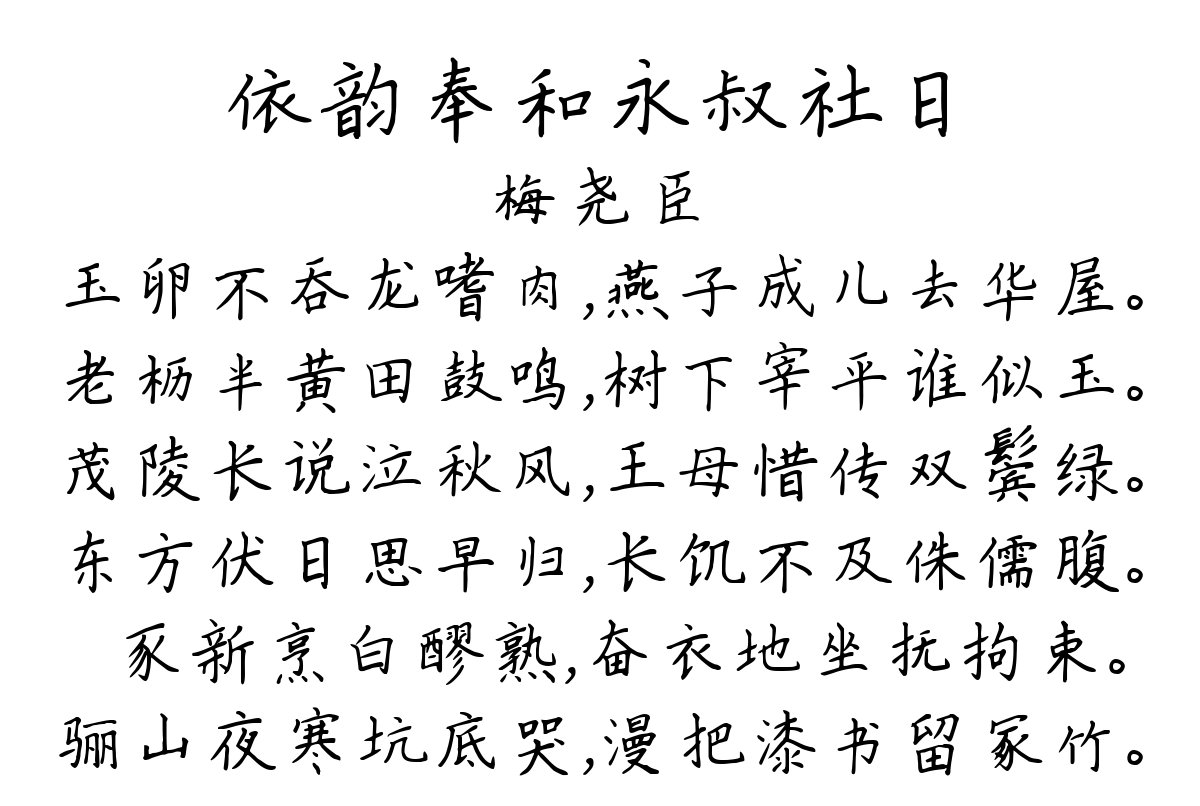 依韵奉和永叔社日
梅尧臣
玉卵不吞龙嗜肉,燕子成儿去华屋。
老枥半黄田鼓鸣,树下宰平谁似玉。
茂陵长说泣秋风,王母惜传双鬓绿。
东方伏日思早归,长饥不及侏儒腹。
豕新烹白醪熟,奋衣地坐抚拘束。
骊山夜寒坑底哭,漫把漆书留冢竹。